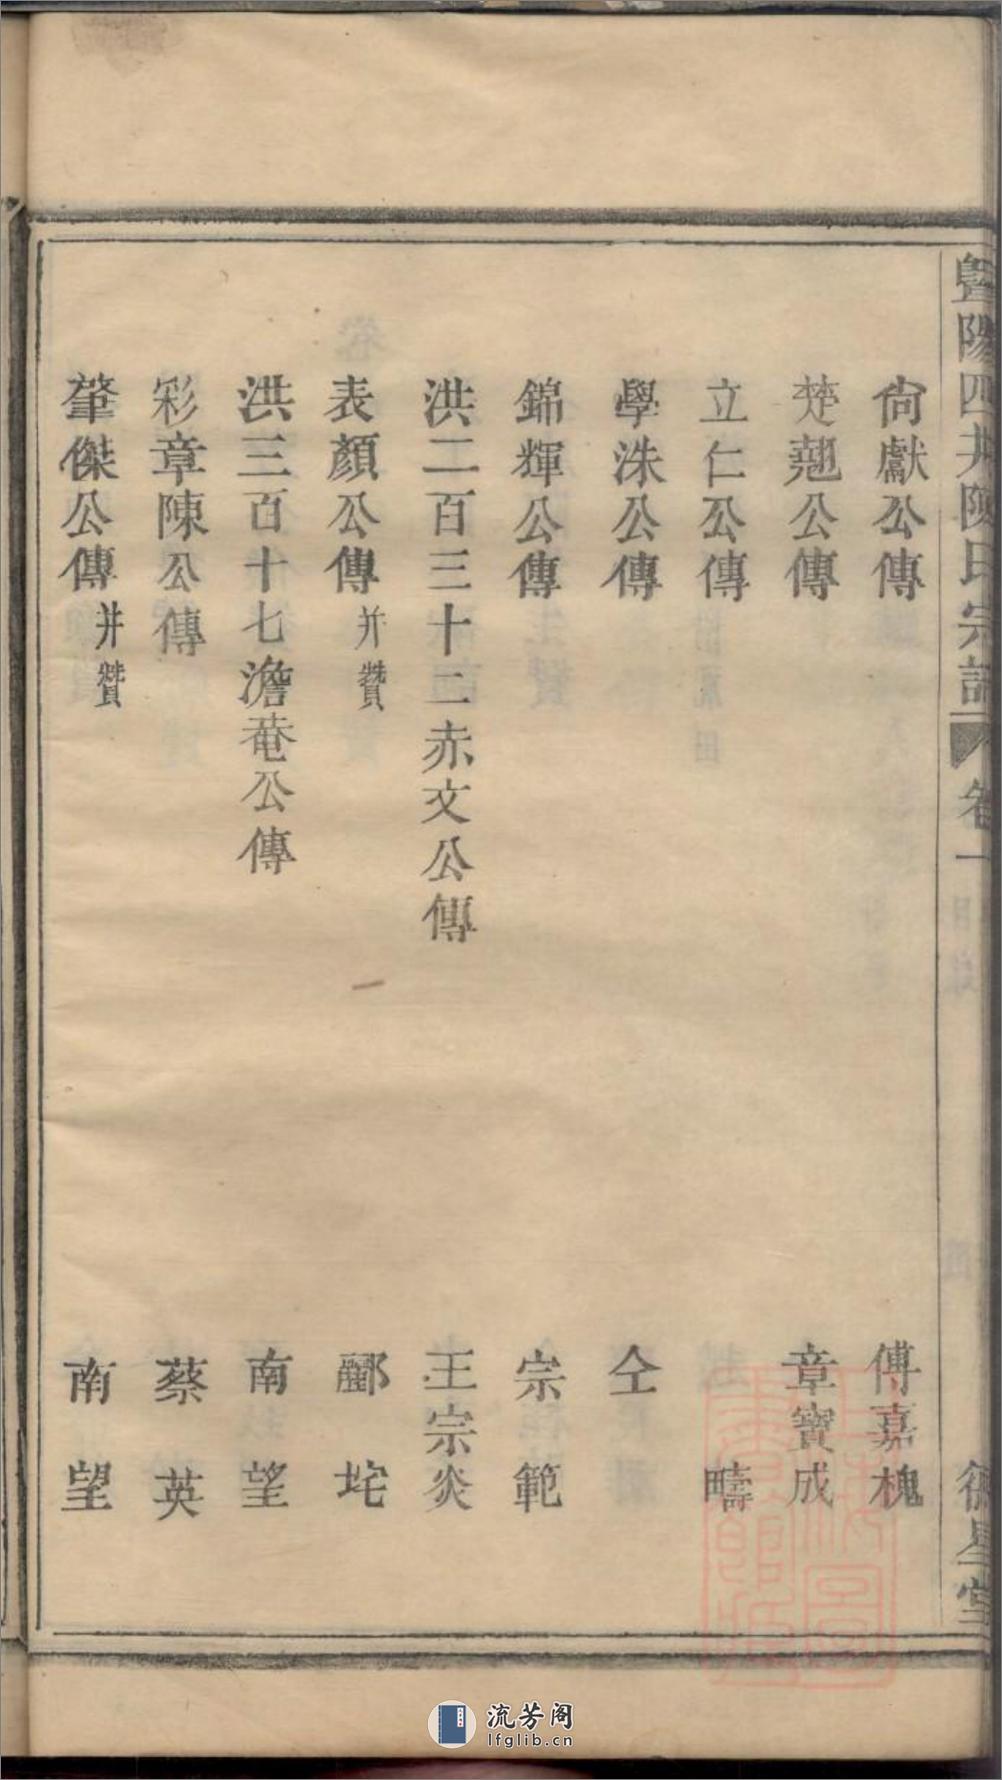 暨陽四井陳氏宗譜 卷一 目錄 德星堂
尙獻公傳 傅嘉槐
楚翹公傳 章寶成
立仁公傳 疇
學洙公傳 仝
錦輝公傳 宗範
洪二百三十二赤文公傳 王宗炎
表顏公傳并贊 酈垞
洪三百十七澹菴公傳 南望
彩章陳公傳 蔡英
肇傑公傳并贊 南望
流芳阁
lfglib.cn